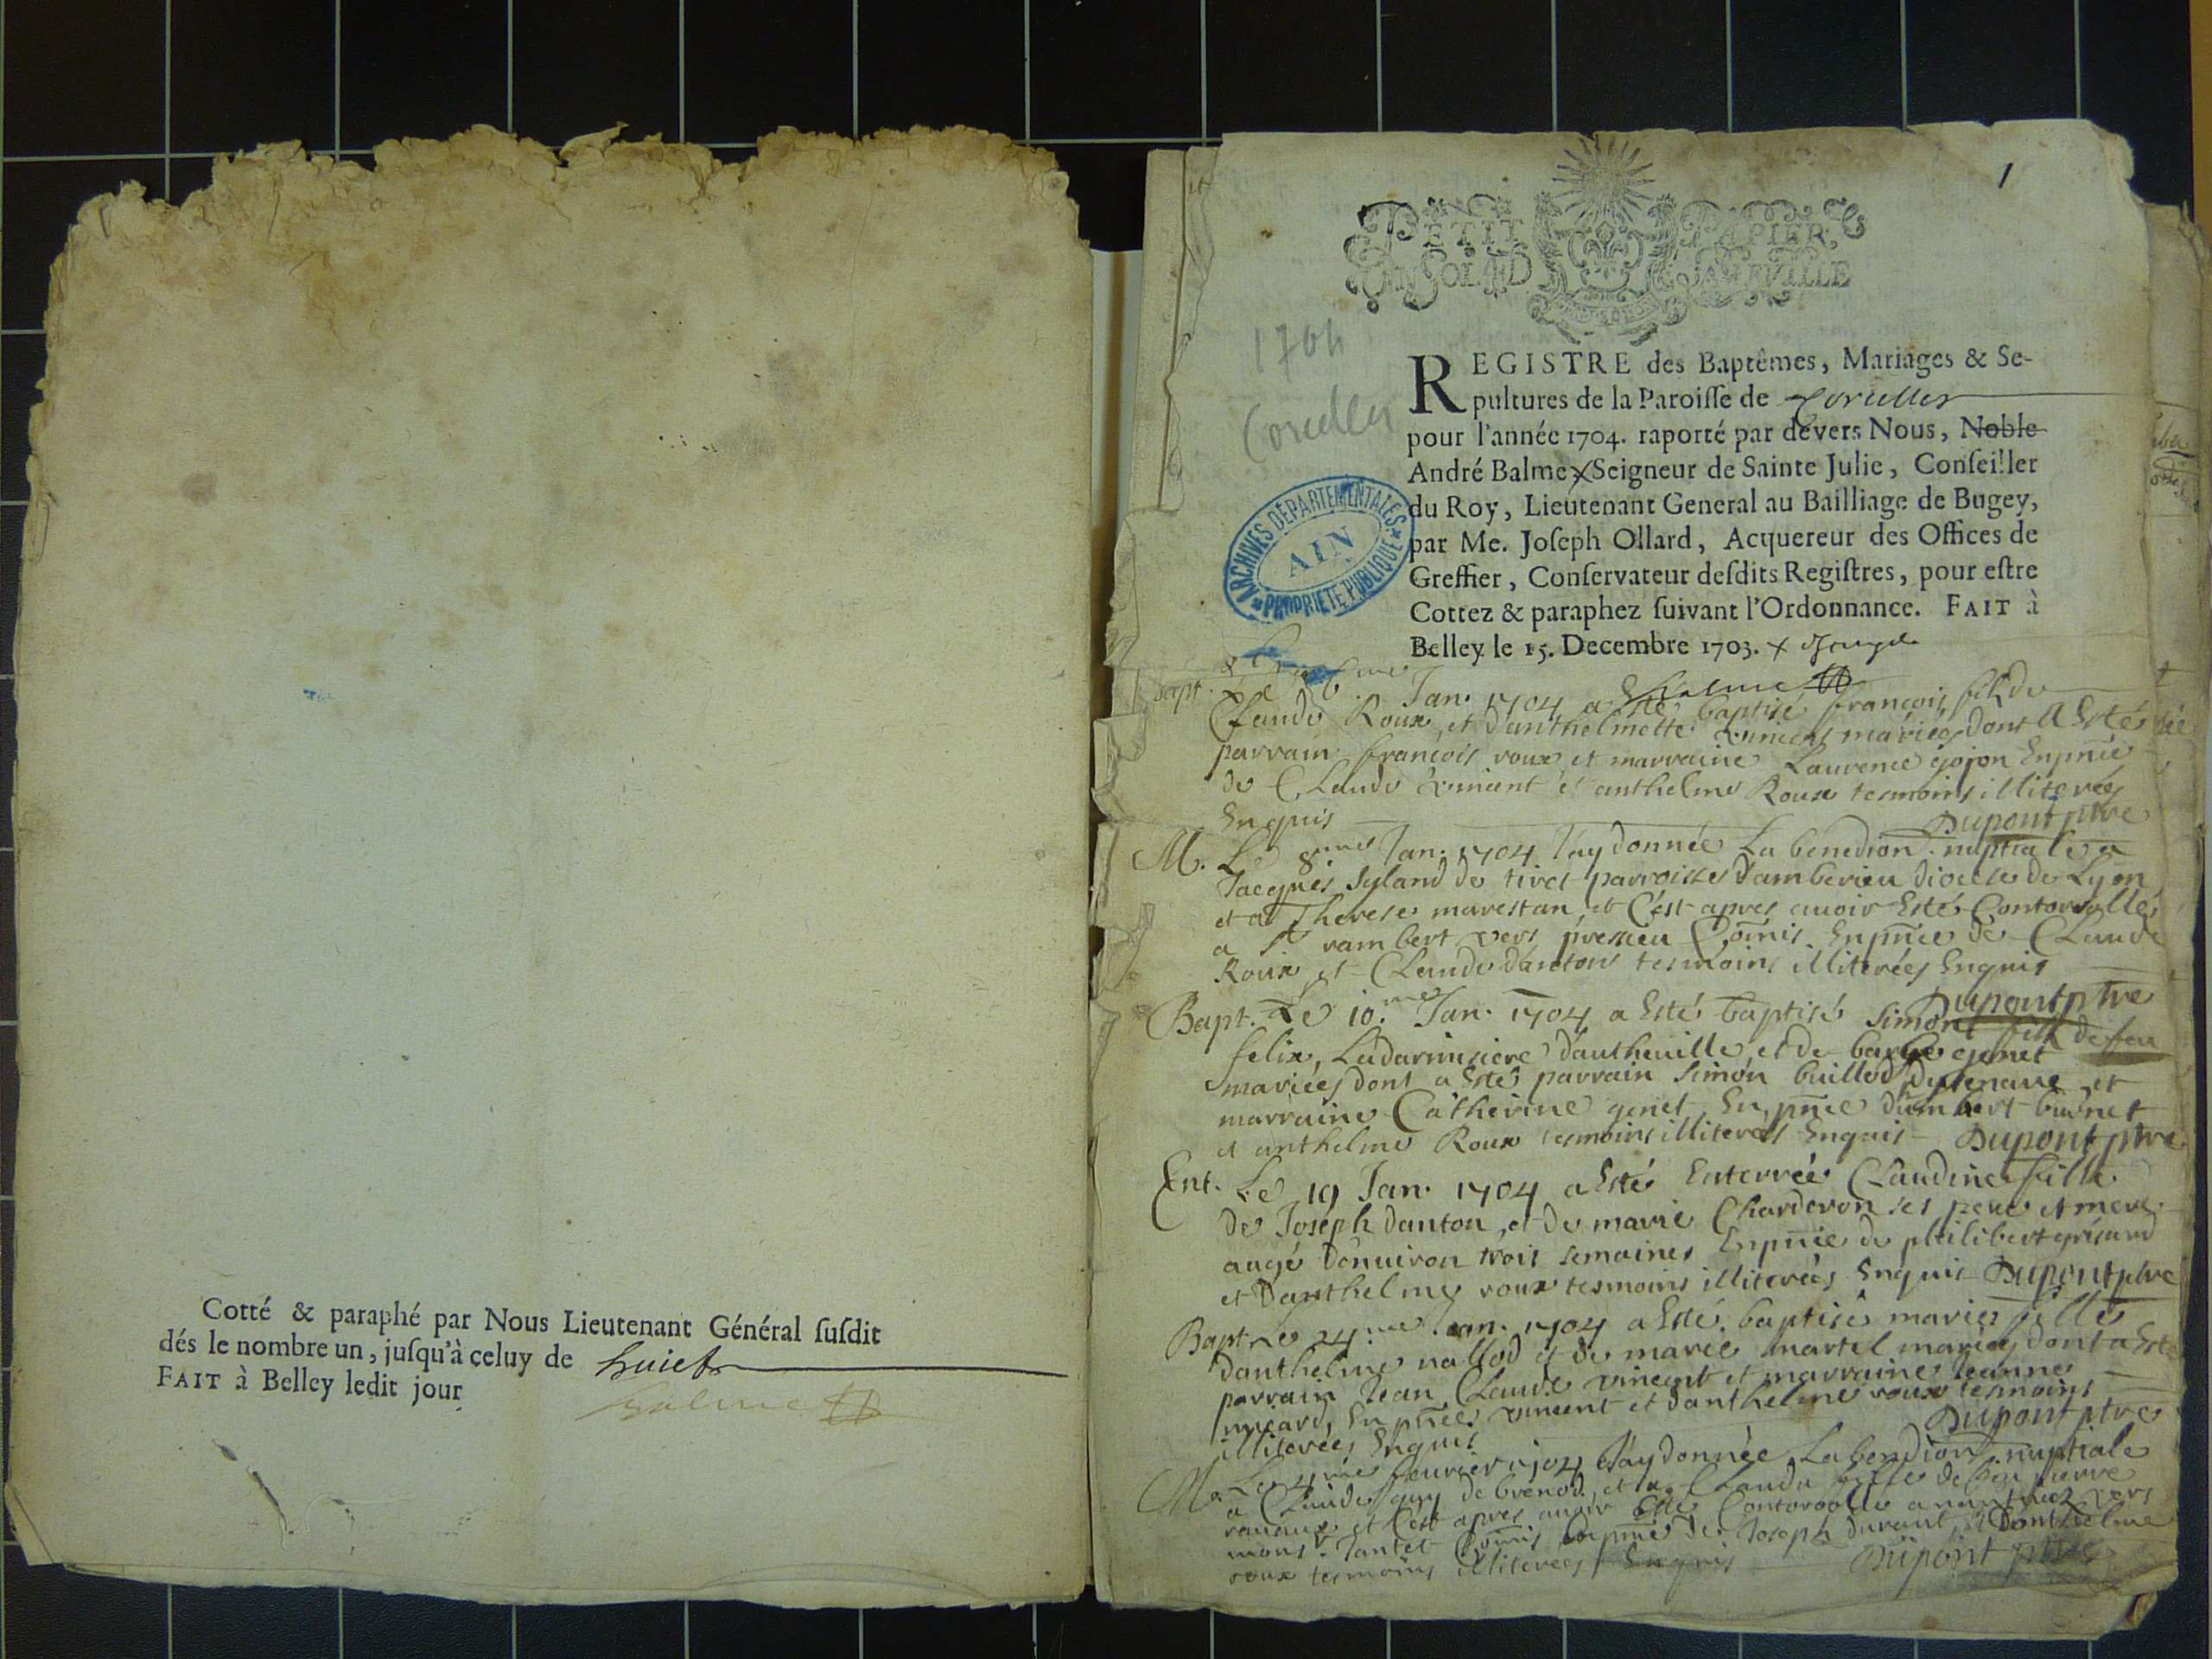 Cotté & paraphé par Nous Lieutenant Général ſuſdit
dés le nombre un, juſqu'à celuy de huict
FAIT à Belley ledit jour
Balme
1
PETIT PAPIER,
UN SOL LA FEUILLE
1704
Corcelles
REGISTRE des Baptêmes, Mariages & Se-
pultures de la Paroiſſe de Corcelles
pour l'année 1704. raporté par devers Nous, Noble
André Balme Seigneur de Sainte Julie, Conſeiller
du Roy, Lieutenant General au Bailliage de Bugey,
par Me. Joſeph Ollard, Acquereur des Offices de
Greffier, Conſervateur deſdits Regiſtres, pour eſtre
Cottez & paraphez ſuivant l'Ordonnance. FAIT à
Belley le 15. Decembre 1703.
Balme
ARCHIVES DÉPARTEMENTALES
AIN
PROPRIÉTÉ PUBLIQUE
Bapt. Le 6.me Jan. 1704 a Esté baptisé françois fils de
Claude Roux, et d'anthelmette vincent mariés dont a Esté
parrain françois roux et marraine Laurence gojon En pnce
de Claude vincent et anthelme Roux tesmoins illiterés
Enquis Dupont ptre
M. Le 8me Jan. 1704 J'ay donnée La benedion nuptiale a
Jacques Syland de tiret parroisse d'amberieu diocese de Lyon
et a Therese marestan et C'est apres auoir Esté Controrollé
a St rambert vers Comis En pnce de Claude
Roux et Claude danton tesmoins illiterées Enquis
Dupont ptre
Bapt. Le 10.me Jan. 1704 a Esté baptisé Simon fils de feu
felix, d'autheuille et de genet
mariées dont a Esté parrain Simon buillod et
marraine Catherine genet En pnce d'umbert burnet
et anthelme Roux tesmoins illiterés Enquis Dupont ptre
Ent. Le 19 Jan. 1704 a Esté Enterrée Claudine fille
de Joseph danton, et de marie Charderon ses pere et mere
aagé d'enuiron trois semaines En pnce de philibert grisard
et d'anthelme roux tesmoins illiterées Enquis Dupont ptre
Bapt. Le 24.me Jan. 1704 a Esté baptisé marie fille
d'anthelme nallod et de marie martel mariés dont a Esté
parrain Jean Claude vincent et marraine Jeanne
En pnce vincent et d'anthelme roux tesmoins
illiterées Enquis Dupont ptre
M. Le 4me feurier 1704 J'ay donnée La bendion nuptiale
a Claude guy de brenod, et a Claude fille de feu pierre
et C'est apres auoir Esté Controrollé a vers
monsr. Jantet Comis En pnce de Joseph durant et d'anthelme
roux tesmoins illiterées Enquis Dupont ptre